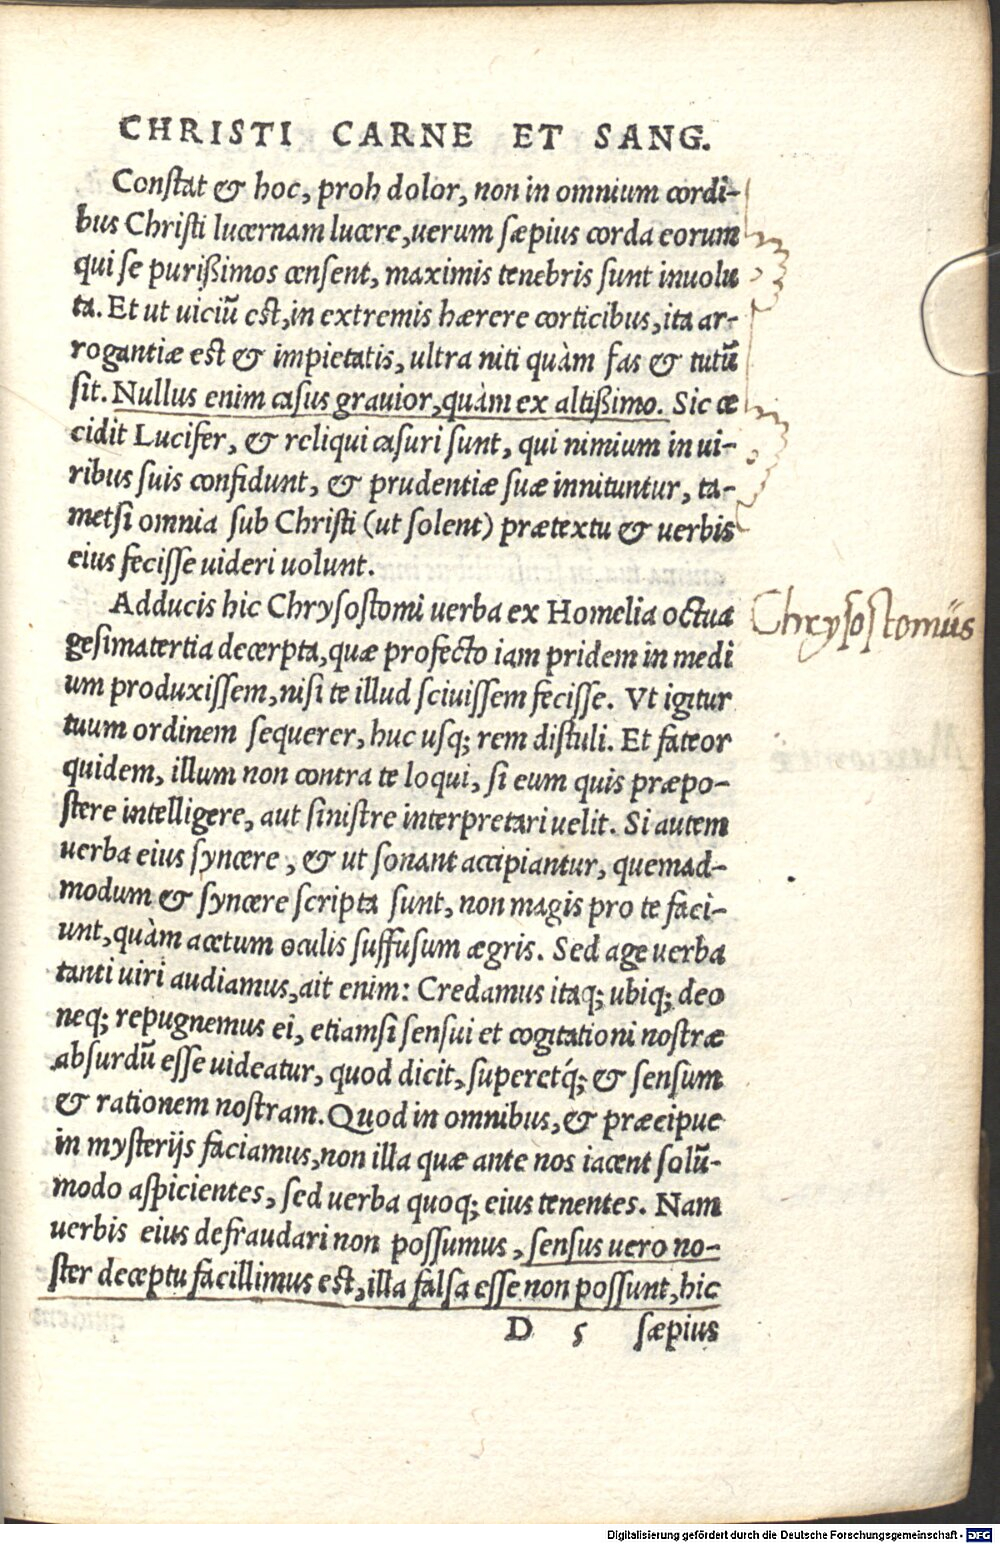 CHRISTI CARNE ET SANG.
Constat & hoc, proh dolor, non in omnium cordi-
bus Christi lucernam lucere, uerum sæpius corda eorum
qui se purißimos censent, maximis tenebris sunt inuolu
ta. Et ut uiciū est, in extremis hærere corticibus, ita ar-
rogantiæ est & impietatis, ultra niti quàm fas & tutū
sit. Nullus enim casus grauior, quàm ex altißimo. Sic ce
cidit Lucifer, & reliqui casuri sunt, qui nimium in ui-
ribus suis confidunt, & prudentiæ suæ innituntur, ta-
metsi omnia sub Christi (ut solent) prætextu & uerbis
eius fecisse uideri uolunt.
Adducis hic Chrysostomi uerba ex Homelia octua
gesimatertia decerpta, quæ profecto iam pridem in medi
um produxissem, nisi te illud sciuissem fecisse. Vt igitur
tuum ordinem sequerer, huc usq; rem distuli. Et fateor
quidem, illum non contra te loqui, si eum quis præpo-
stere intelligere, aut sinistre interpretari uelit. Si autem
uerba eius syncere, & ut sonant accipiantur, quemad-
modum & syncere scripta sunt, non magis pro te faci-
unt, quàm acetum oculis suffusum ægris. Sed age uerba
tanti uiri audiamus, ait enim: Credamus itaq; ubiq; deo
neq; repugnemus ei, etiamsi sensui et cogitationi nostræ
absurdū esse uideatur, quod dicit, superetq́; & sensum
& rationem nostram. Quod in omnibus, & præcipue
in mysterijs faciamus, non illa quæ ante nos iacent solū-
modo aspicientes, sed uerba quoq; eius tenentes. Nam
uerbis eius defraudari non possumus, sensus uero no-
ster deceptu facillimus est, illa falsa esse non possunt, hic
D 5 sæpius
Chrysostomus
Digitalisierung gefördert durch die Deutsche Forschungsgemeinschaft - DFG